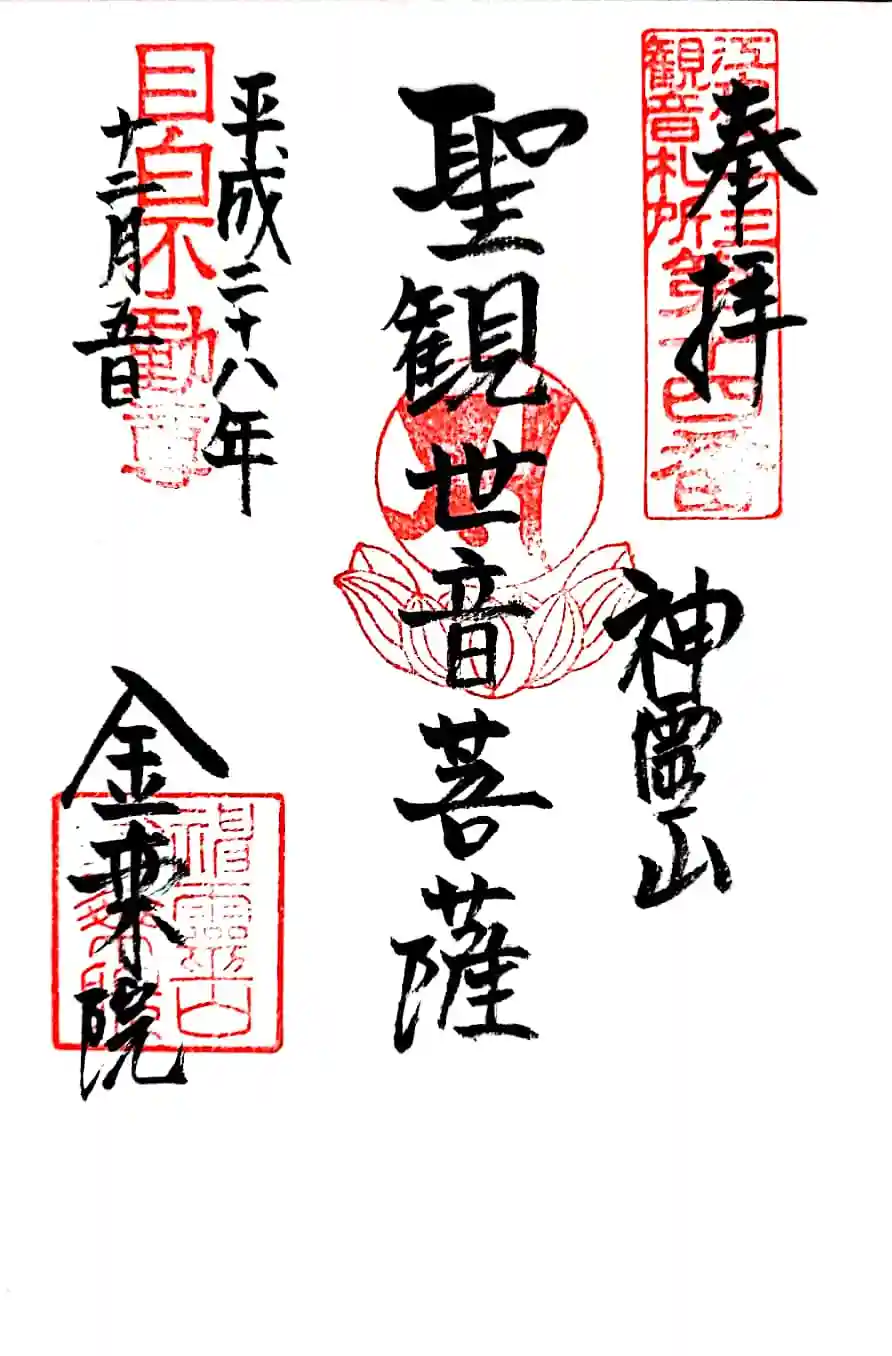 奉拝
神霊山
聖観世音菩薩
平成二十八年
十二月五日
金乗院
目白不動尊
観音札所第十四番
神霊山